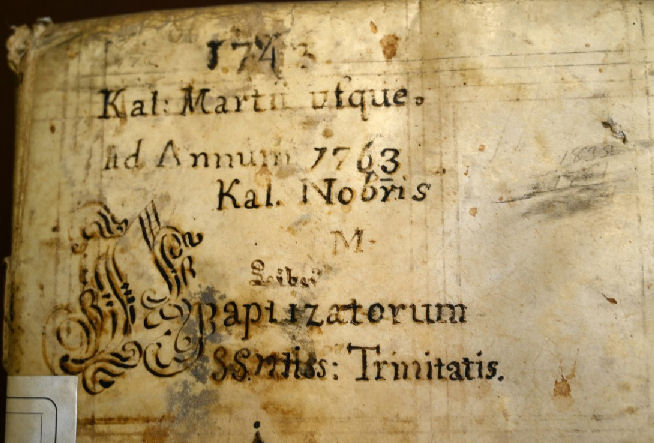 1743
Kal: Martii usque.
Ad Annum 1763
Kal. Nobris
M.
Liber
Baptizatorum
SSmæ: Trinitatis.